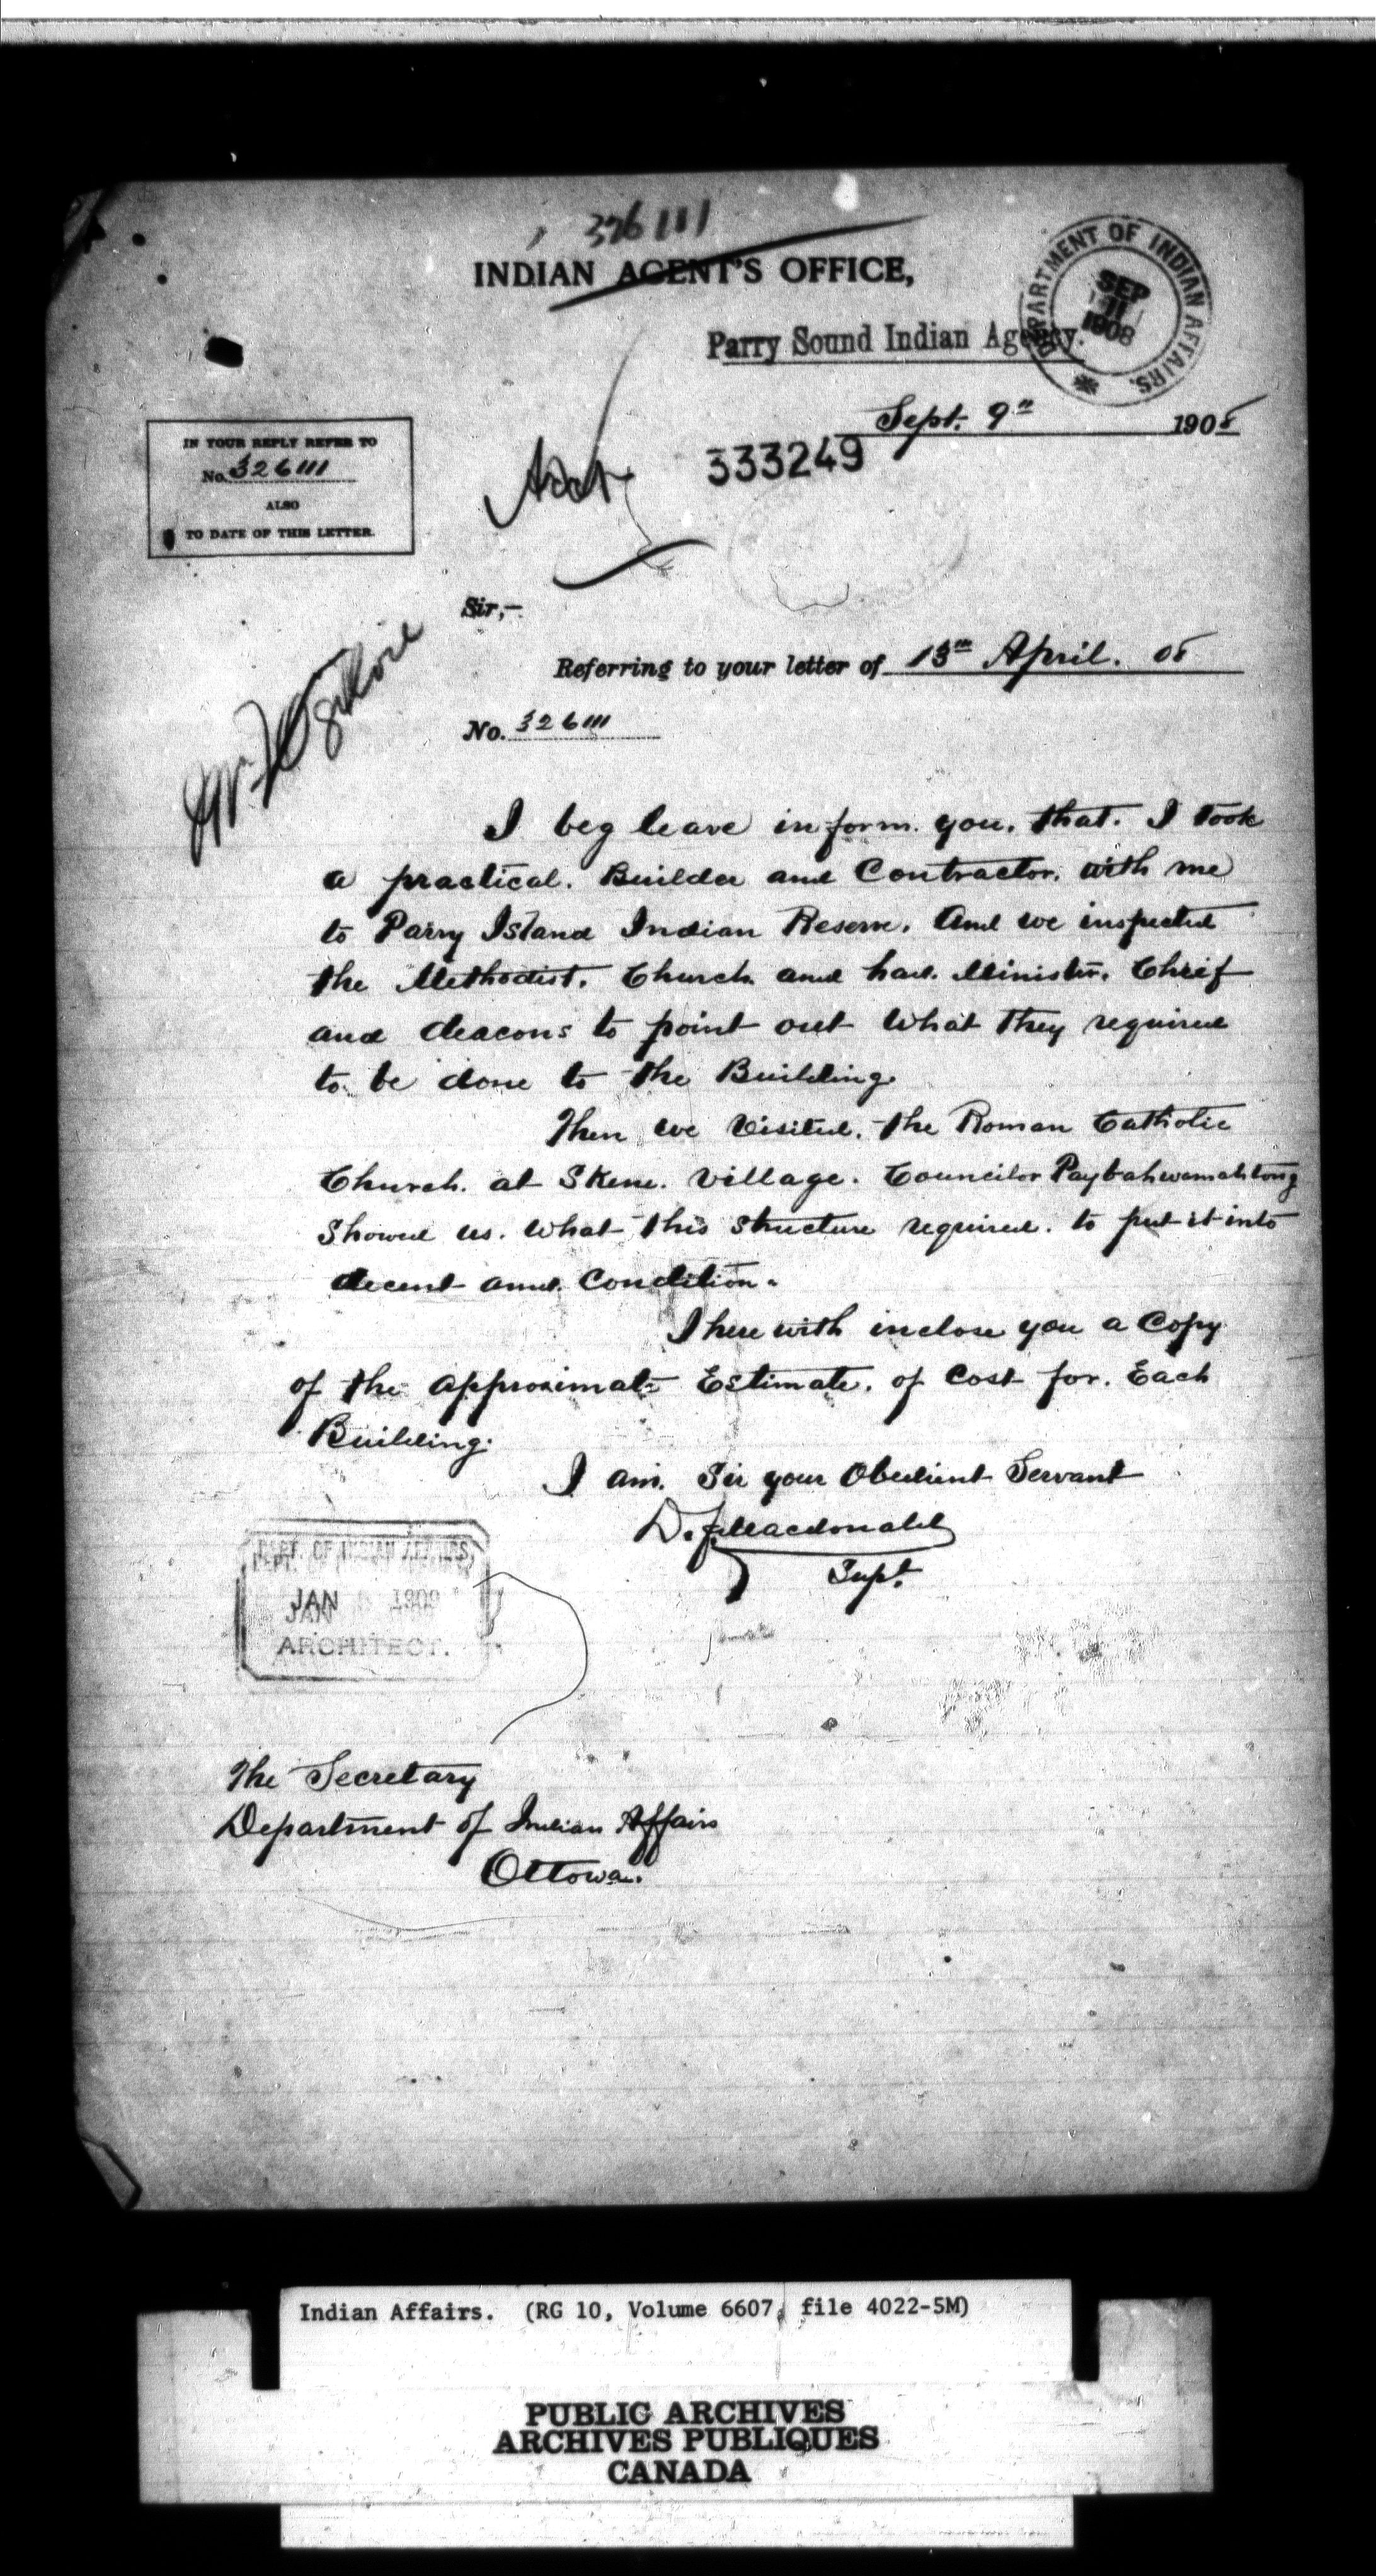 326111
INDIAN AGENT'S OFFICE,
DEPARTMENT OF INDIAN AFFAIRS.
SEP
11
1908
Parry Sound Indian Agency.
Sept. 9th 1908
333249
IN YOUR REPLY REFER TO
No. 326111
ALSO
TO DATE OF THIS LETTER.
Sir,-
Referring to your letter of 13th April. 08
No. 326111
I beg leave inform. you. that. I took
a practical. Builder and Contractor. with me
to Parry Island Indian Reserve. And we inspected
the Methodist. Church. and had. Minister. Chief
and deacons to point out what they required
to be done to the Building.
Then we visited. the Roman Catholic
Church. at Skene. Village. Councilor Paybahwamahtong
showed us. what this structure required. to put it into
decent and. Condition.
I here with inclose you a Copy
of the approximate Estimate. of Cost for. Each
Building.
I am. Sir your Obedient Servant
D. F. Macdonald
Supt.
DEPT. OF INDIAN AFFAIRS
JAN 1909
ARCHITECT.
The Secretary
Department of Indian Affairs
Ottowa.
Indian Affairs. (RG 10, Volume 6607, file 4022-5M)
PUBLIC ARCHIVES
ARCHIVES PUBLIQUES
CANADA